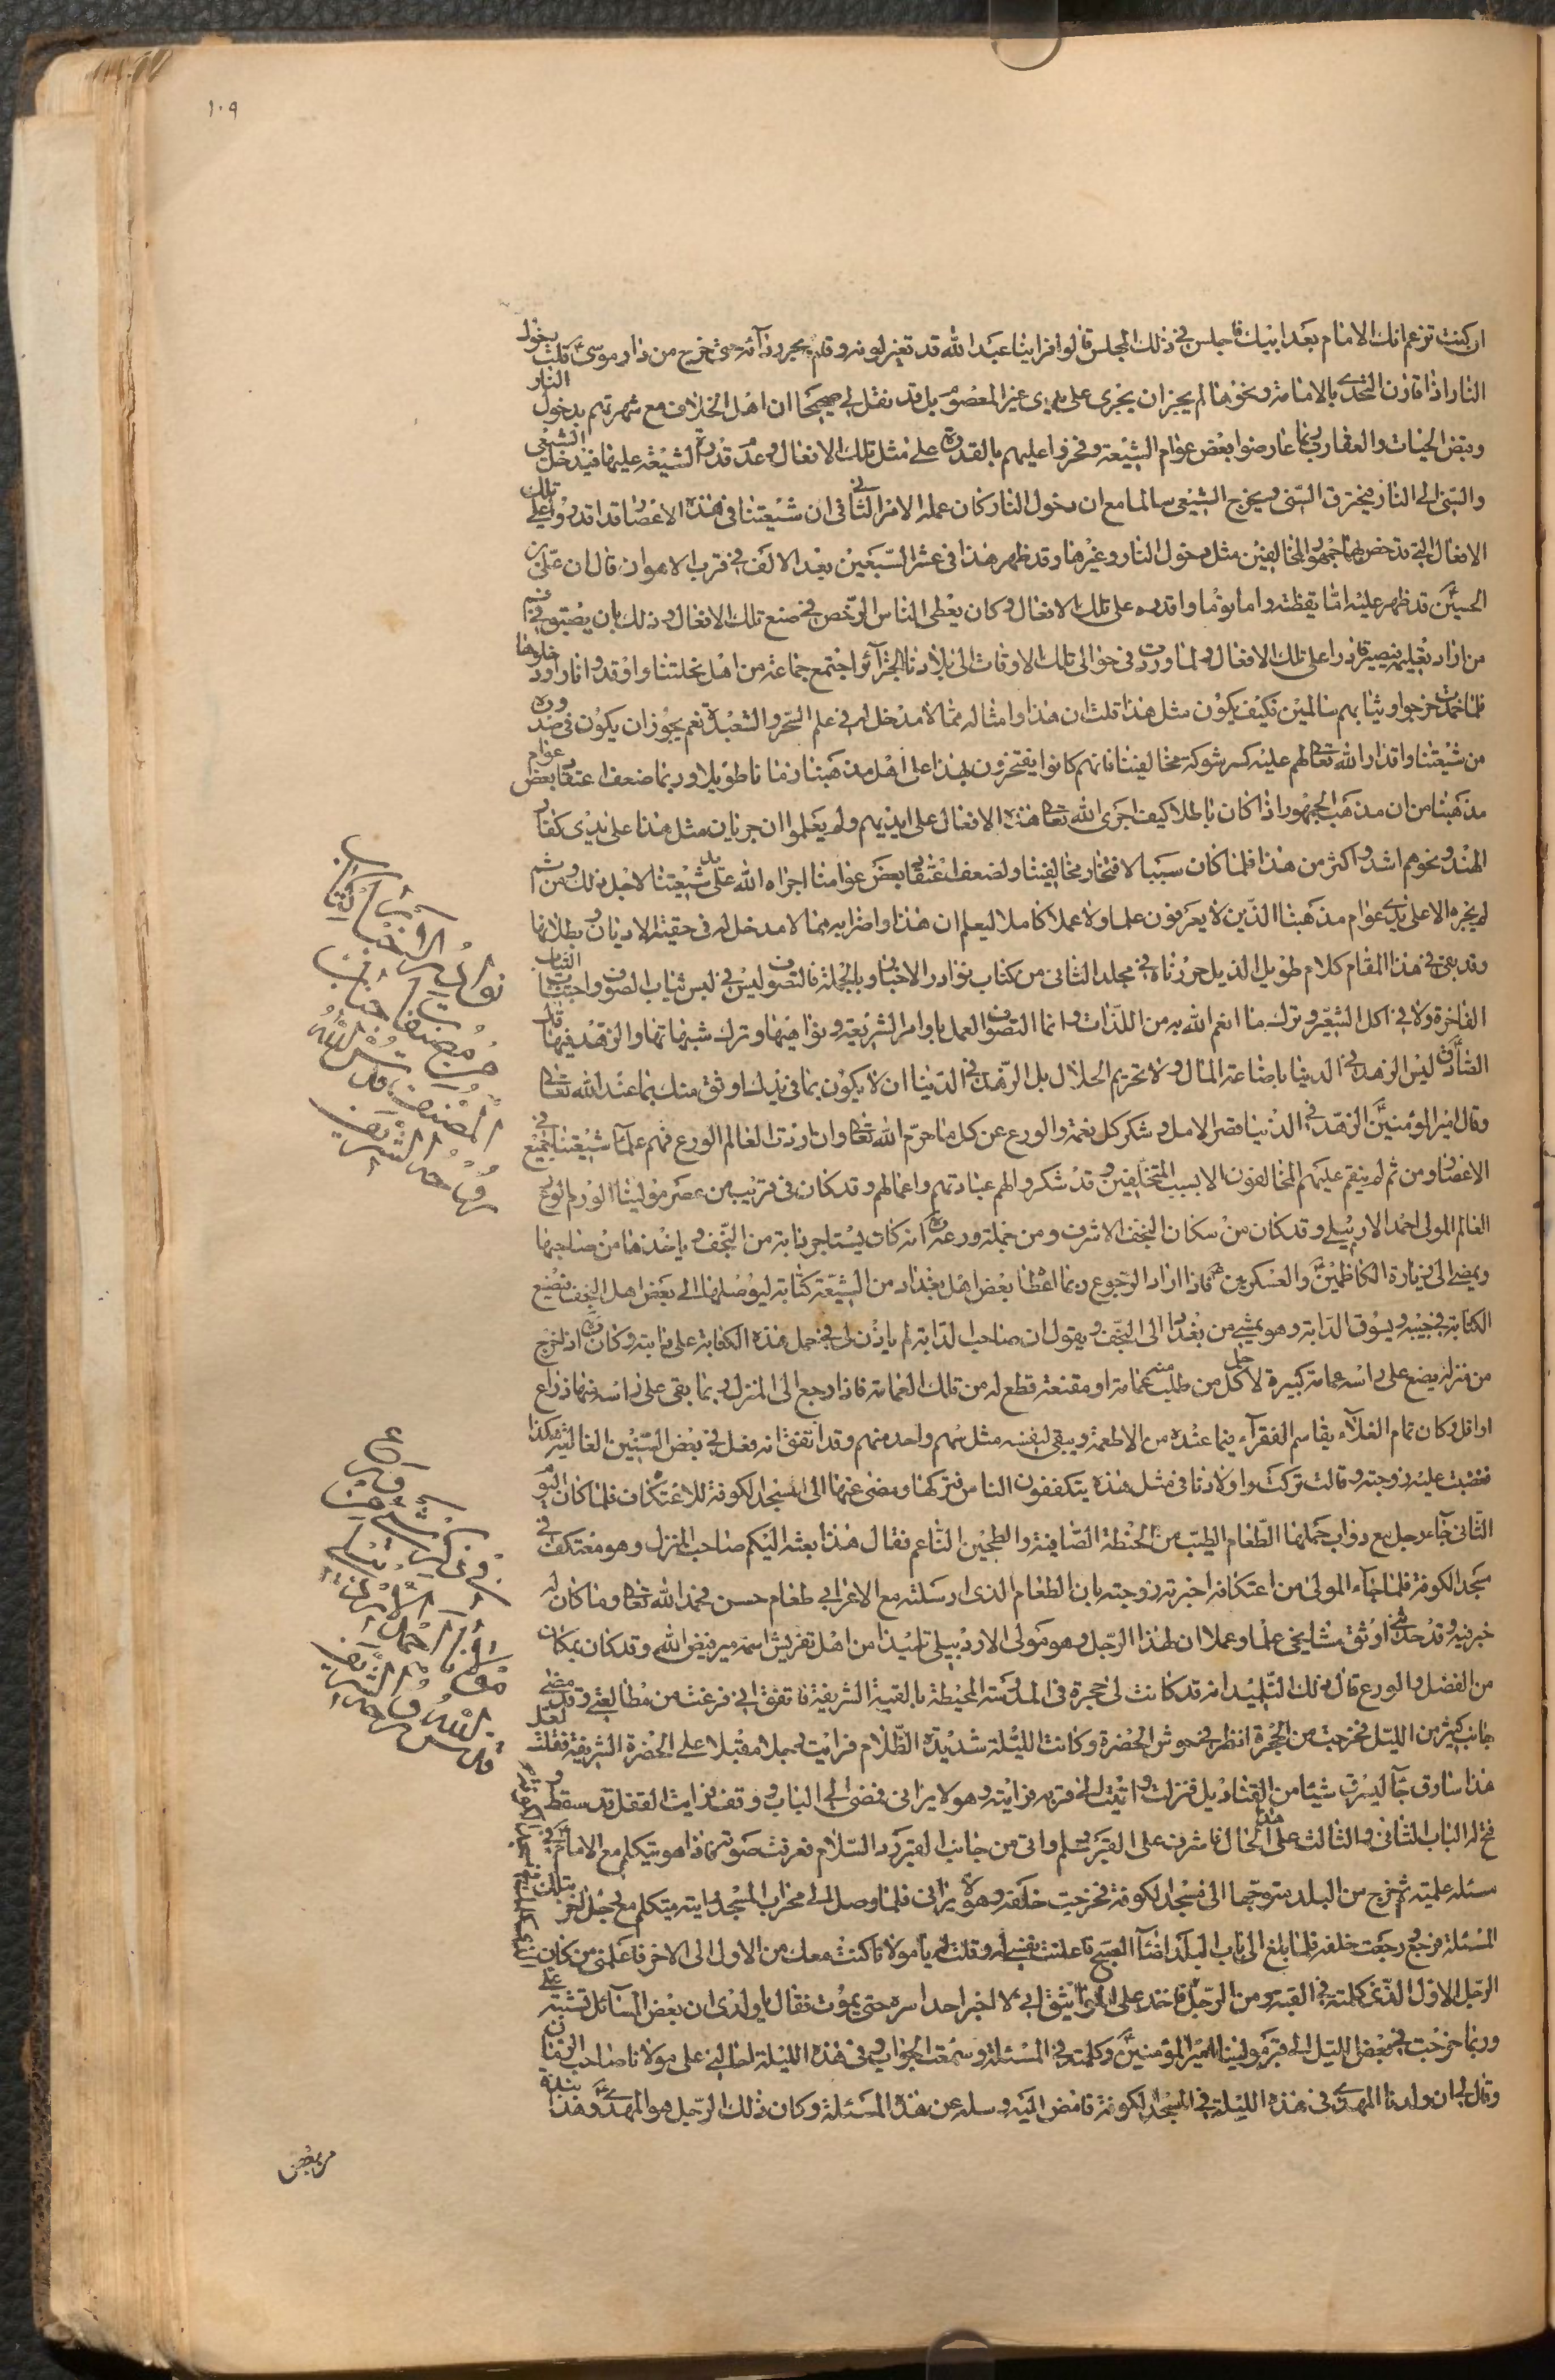 ١٠٩
ان كنت تزعم انك الامام بعد ابيك فاجلس في ذلك المجلس قالوا فراينا عبد الله قد تغير لونه وقام يجر ردائه حتى خرج من دار موسى ع قلت دخول
النار اذا قارن التحدي بالامامة ونحوها لم يجز ان يجرى على يدى غير المعصوم بل قد نقل لي صحيحا ان اهل الخلاف مع شهرتهم بدخول النار
وقبض الحيات والعقارب ربما عارضوا بعض عوام الشيعة وفخروا عليهم بالقدرة على مثل تلك الافعال وعدم قدرة الشيعة عليها فيدخل الشيعى
والسنى الى النار فيحترق السنى ويخرج الشيعى سالما مع ان دخول النار كان عمله الامر الثانى ان شيعتنا في هذه الاعصار قد اقدروا على تلك
الافعال التي تدحض بها جمهور المخالفين مثل دخول النار وغيرها وقد ظهر هذا في عشر السبعين بعد الالف في قرب الاهواز قال ان على بن
الحسين ع قد ظهر عليه اما يقظة واما نوما واقدره على تلك الافعال وكان يعطى الناس الرخص في صنع تلك الافعال وذلك بان يبصق في فم
من اراد تعليمه فيصير قادرا على تلك الافعال ولما وردت في حوالى تلك الاوقات الى بلادنا الجزائر اجتمع جماعة من اهل نحلتنا واوقدوا نارا ودخلوها
فلما خمدت خرجوا وثيابهم سالمين فكيف يكون مثل هذا قلت ان هذا وامثاله مما لا مدخل له في علم السحر والشعبدة نعم يجوز ان يكون في صدوره
من شيعتنا واقدار الله تعالى لهم عليه كسر شوكة مخالفينا فانهم كانوا يفتخرون بهذا على اهل مذهبنا زمانا طويلا وربما ضعف اعتقاد بعض عوام
مذهبنا من ان مذهب الجمهور اذا كان باطلا كيف اجرى الله تعالى هذه الافعال على ايديهم ولم يعلموا ان جريان مثل هذا على يدى كفار
الهند ونحوهم اشد واكثر من هذا فلما كان سببا لافتخار مخالفينا ولضعف اعتقاد بعض عوامنا اجراه الله على يد شيعتنا لاجل ذلك ومن ثم
لم يجره الا على يدى عوام مذهبنا الذين لا يعرفون علما ولا عملا كاملا ليعلم ان هذا واضرابه مما لا مدخل له في حقية الاديان وبطلانها
وقد بقى في هذا المقام كلام طويل الذيل حررناه في مجلد الثانى من كتاب نوادر الاخبار وبالجملة فالتصوف ليس في لبس ثياب الصوف واجتناب الثياب
الفاخرة ولا في اكل الشعير وترك ما انعم الله به من اللذات وانما التصوف العمل باوامر الشريعة ونواهيها وترك شبهاتها والزهد فيها قال
الصادق ع ليس الزهد في الدنيا باضاعة المال ولا تحريم الحلال بل الزهد في الدنيا ان لا يكون بما في يدك اوثق منك بما عند الله تعالى
وقال امير المؤمنين ع الزهد في الدنيا قصر الامل وشكر كل نعمة والورع عن كل ما حرم الله تعالى وان اردت العالم الورع فهم علماء شيعتنا في جميع
الاعصار ومن ثم لم ينقم عليهم المخالفون الا بسبب المتخلفين وقد شكروا لهم عبادتهم واعمالهم وقد كان في قريب من عصر مولينا الورع
العالم المولى احمد الاردبيلى وقد كان من سكان النجف الاشرف ومن جملة ورعه ره انه كان يستاجر دابة من النجف وياخذها من صاحبها
ويمضى الى زيارة الكاظمين ع والعسكريين ع فاذا اراد الرجوع ربما اعطاه بعض اهل بغداد من الشيعة كتابة ليوصلها الى بعض اهل النجف فيضع
الكتابة في جيبه ويسوق الدابة وهو يمشى من بغداد الى النجف ويقول ان صاحب الدابة لم ياذن لى في حمل هذه الكتابة على دابته وكان ره اذا خرج
من منزله يضع على راسه عمامة كبيرة لاجل كل من طلب منه عمامة او مقنعة قطع له من تلك العمامة فاذا رجع الى المنزل ربما بقى على راسه منها ذراع
او اقل وكان عام الغلاء يقاسم الفقراء فيما عنده من الاطعمة ويبقى لنفسه مثل سهم واحد منهم وقد اتفق انه فعل في بعض السنين الغالية هكذا
فغضبت عليه زوجته وقالت تركت اولادنا في مثل هذه يتكففون الناس فتركها ومضى عنها الى مسجد الكوفة للاعتكاف فلما كان اليوم
الثانى جاء رجل مع دواب حملها الطعام الطيب من الحنطة الصافية والطحين الناعم فقال هذا بعثه اليكم صاحب المنزل وهو معتكف في
مسجد الكوفة فلما جاء المولى من اعتكافه اخبرته زوجته بان الطعام الذى ارسلته مع الاعرابي طعام حسن فحمد الله تعالى وما كان له
خبر فيه وقد حدثنى اوثق مشايخى علما وعملا ان لهذا الرجل وهو مولى الاردبيلى تلميذا من اهل تفريش اسمه مير فيض الله وقد كان بمكان
من الفضل والورع قال ذلك التلميذ انه قد كانت لى حجرة في المدرسة المحيطة بالقبة الشريفة فاتفق انى فرغت من مطالعتى وقد مضى
جانب كثير من الليل فخرجت من الحجرة انظر في حوش الحضرة وكانت الليلة شديدة الظلام فرايت رجلا مقبلا على الحضرة الشريفة فقلت لعل
هذا سارق جاء ليسرق شيئا من القناديل فنزلت واتيت الى قربه فرايته وهو لا يرانى فمضى الى الباب ووقف فرايت القفل قد سقط و
فتح له الباب الثانى والثالث على هذا الحال فاشرف على القبر فسلم واتى من جانب القبر رد السلام فعرفت صوته فاذا هو يتكلم مع الامام ع في
مسئلة علمية ثم خرج من البلد متوجها الى مسجد الكوفة فخرجت خلفه وهو لا يرانى فلما وصل الى محراب المسجد رايته يتكلم مع رجل اخر بتلك
المسئلة فرجع ورجعت خلفه فلما بلغ الى باب البلد اضاء الصبح فاعلنت نفسى له وقلت له يا مولانا كنت معك من الاول الى الاخر فاعلمنى من كان
الرجل الاول الذى كلمته في القبة ومن الرجل فاخذ على المواثيق انى لا اخبر احدا سره حتى يموت فقال يا ولدى ان بعض المسائل تشتبه على
وربما خرجت في بعض الليل الى قبر مولينا امير المؤمنين ع وكلمته في المسئلة وسمعت الجواب وفى هذه الليلة احالنى على مولانا صاحب الزمان
وقال لى ان ولدنا المهدى في هذه الليلة في مسجد الكوفة فامض اليه وسله عن هذه المسئلة وكان ذلك الرجل هو المهدى ع وهذا
نوادر الاخبار كتاب
من مصنفات جناب
المصنف قدس الله
روحه الشريف
في ذكر شمة من ورع
مولانا احمد الاردبيلى
قدس الله روحه الشريف